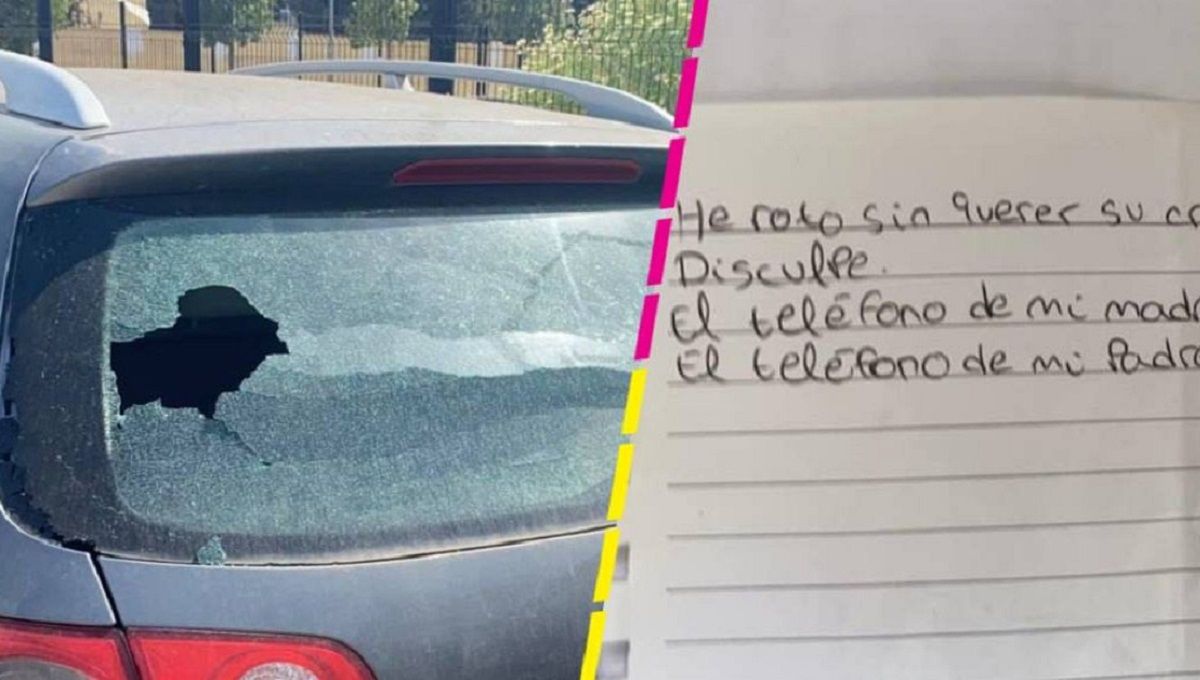 He roto sin querer su cr
Disculpe.
El teléfono de mi mad
El teléfono de mi Padr